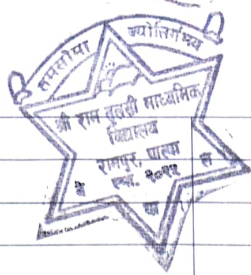 तमसोमा ज्योतिर्गमय
श्री राम तुलसी माध्यमिक
विद्यालय
रामपुर, पाल्पा
स्था. २०१५